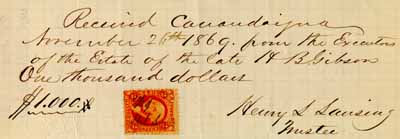 Received Canandaigua
November 26th 1869. from the Executors
of the Estate of the late H B Gibson
One thousand dollars
$1.000.
Henry L Lansing
Trustee